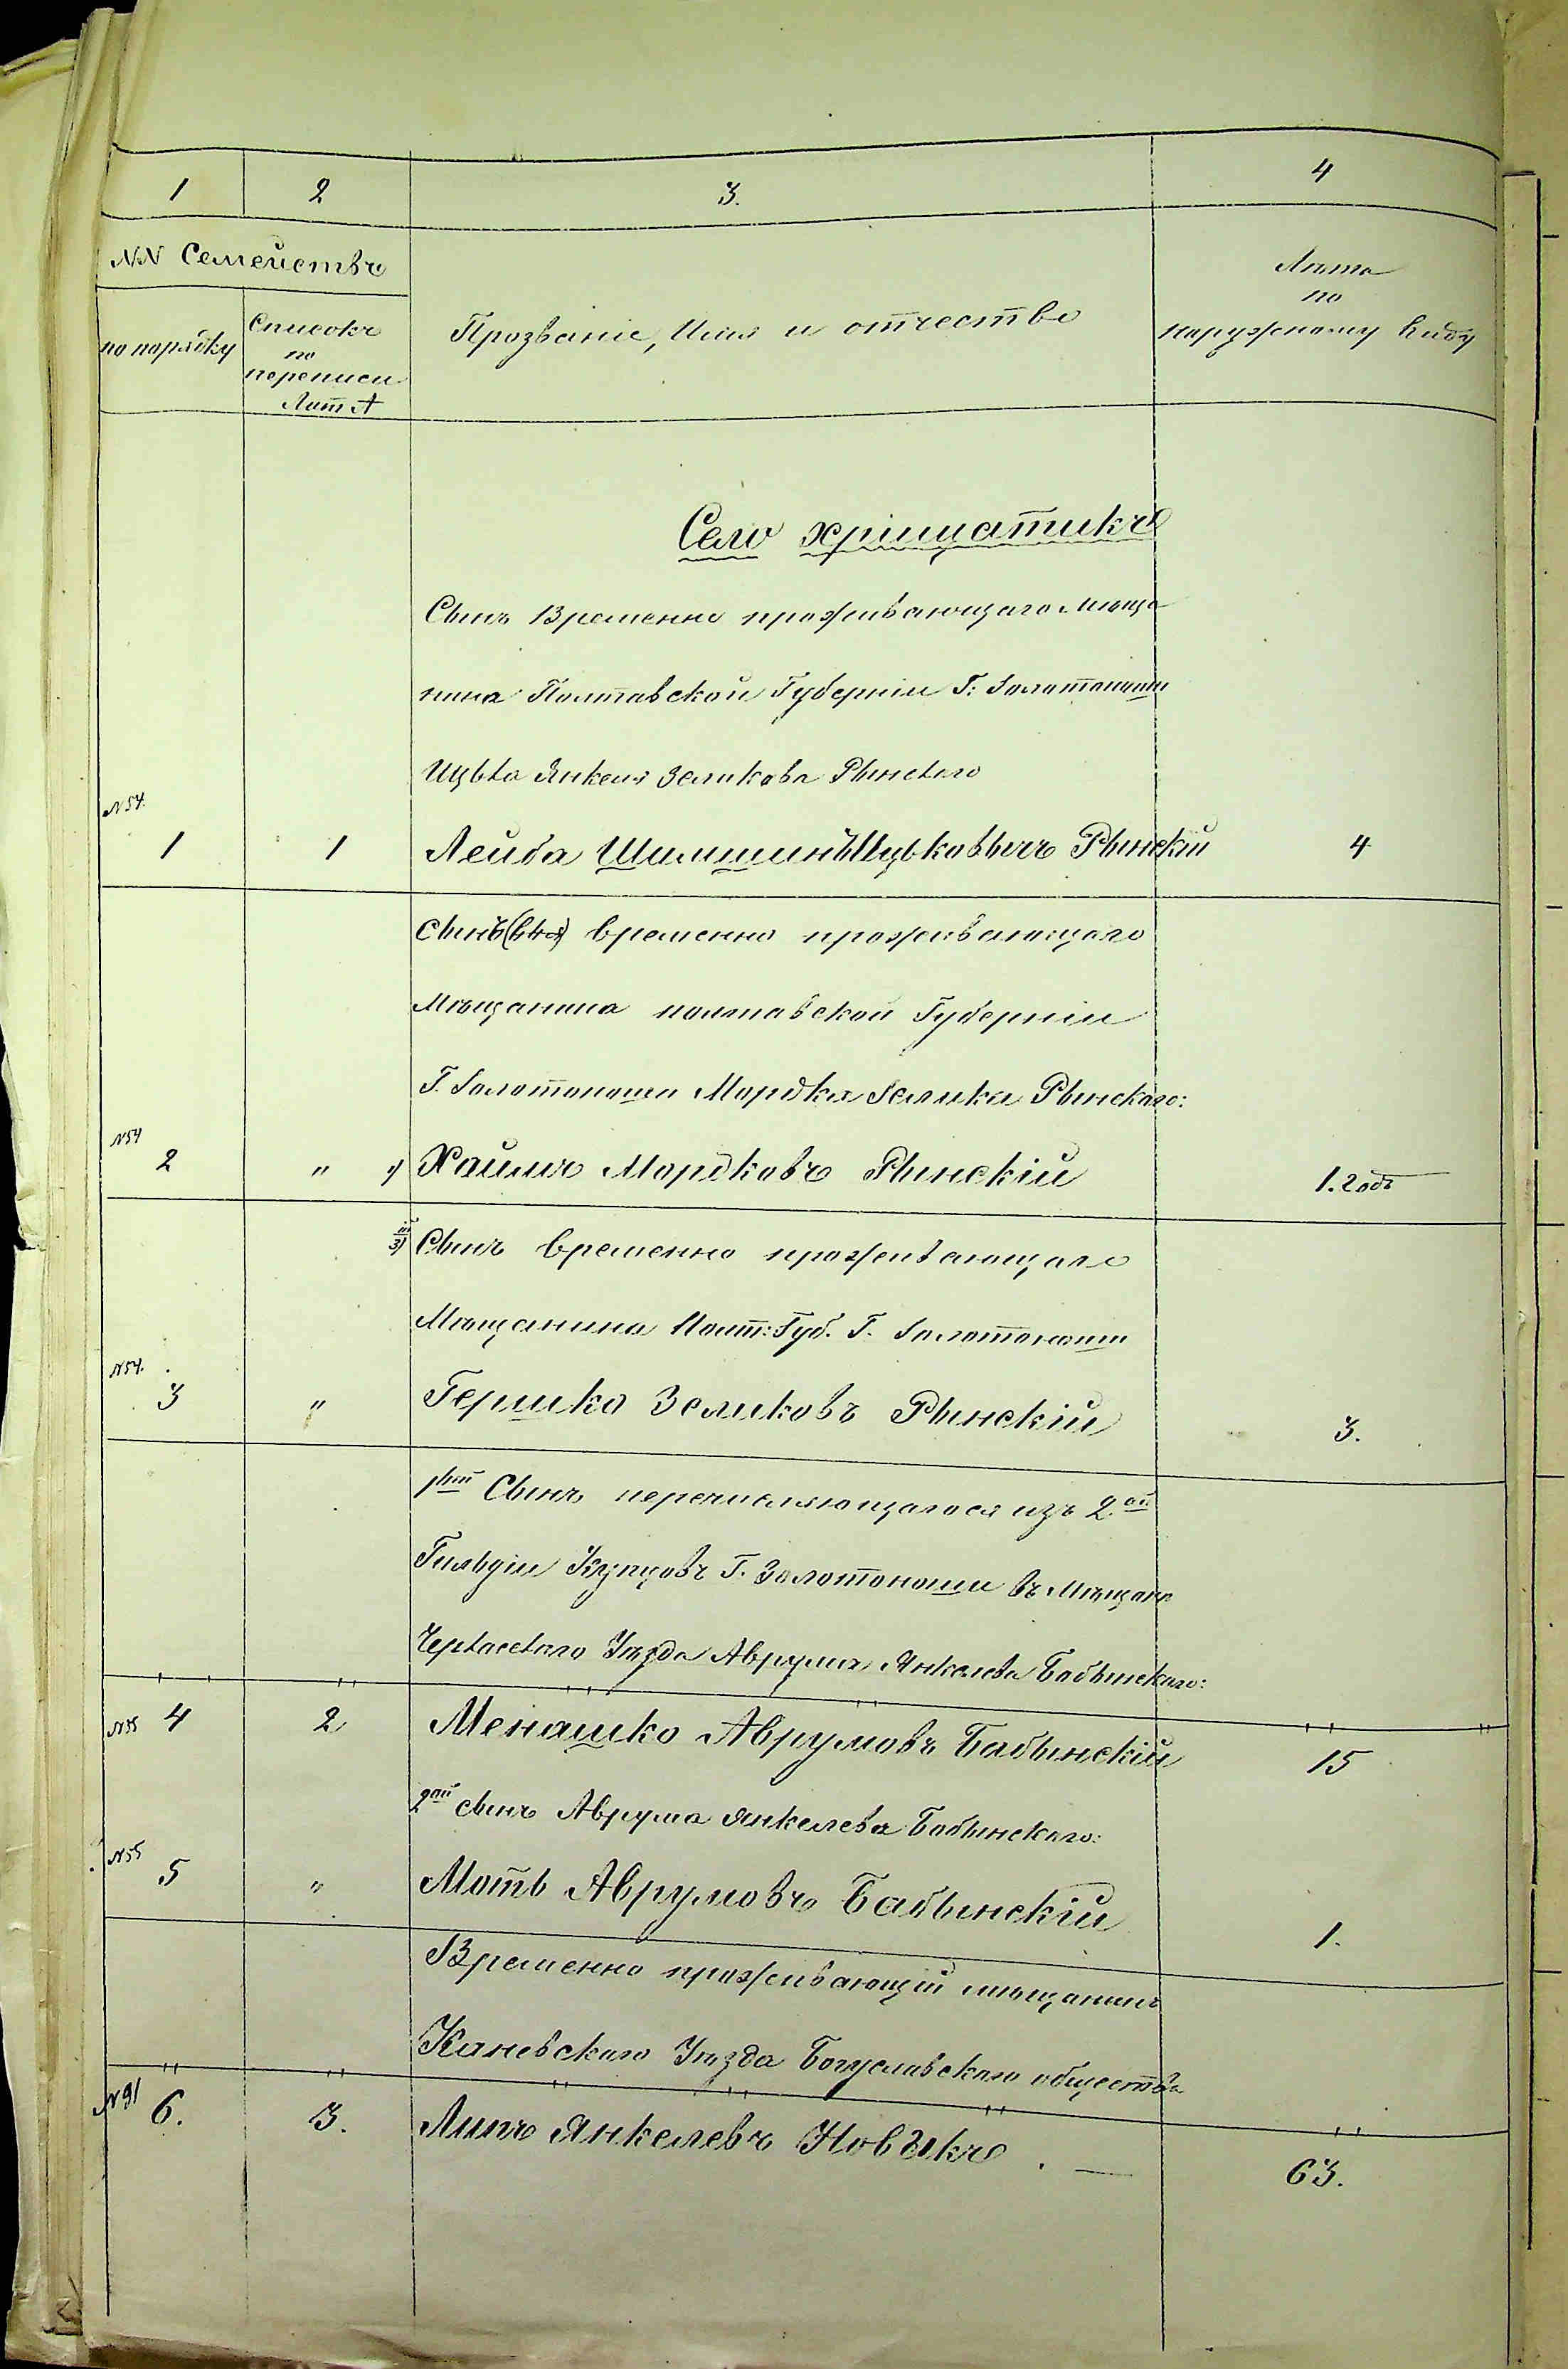 1 2 3. 4
NN Семействъ
по порядку
Списокъ
по
переписи
Лит А
Прозваніе, Имя и отчество
Лѣта
по
наружному виду
Село хріщатикъ
Сынъ Временно проживающаго мѣща
нина Полтавской Губерніи Г: Золотоноши
Ицька Янкеля Зеликова Рынского
N54.
1 1 Лейба Шимшинъ Ицьковъвичъ Рынскій 4
Сынъ временно проживающаго
Мѣщанина полтавской Губерніи
Г. Золотоноши Мордка Зелика Рынскаго:
N54
2 " Хаимъ Мордковъ Рынскій 1. годъ
3) Сынъ временно проживающаго
Мѣщанина Полт: Губ. Г. Золотоноши
N54.
3 " Гершко Зеликовъ Рынскій 3.
1вый Сынъ перечисляющагося изъ 2.ой
Гильдіи Купцовъ Г. Золотоноши въ Мѣщане
Черкасскаго Уѣзда Аврума Янкелева Бабынскаго:
N55 4 2 Менашко Аврумовъ Бабынскій 15
2ой сынъ Аврума Янкелева Бабынскаго:
N55
5 " Моть Аврумовъ Бабынскій 1.
Временно проживающій мѣщанинъ
Каневскаго Уѣзда Богуславскаго общества
N91 6. 3. Липъ Янкелевъ Новакъ . — 63.